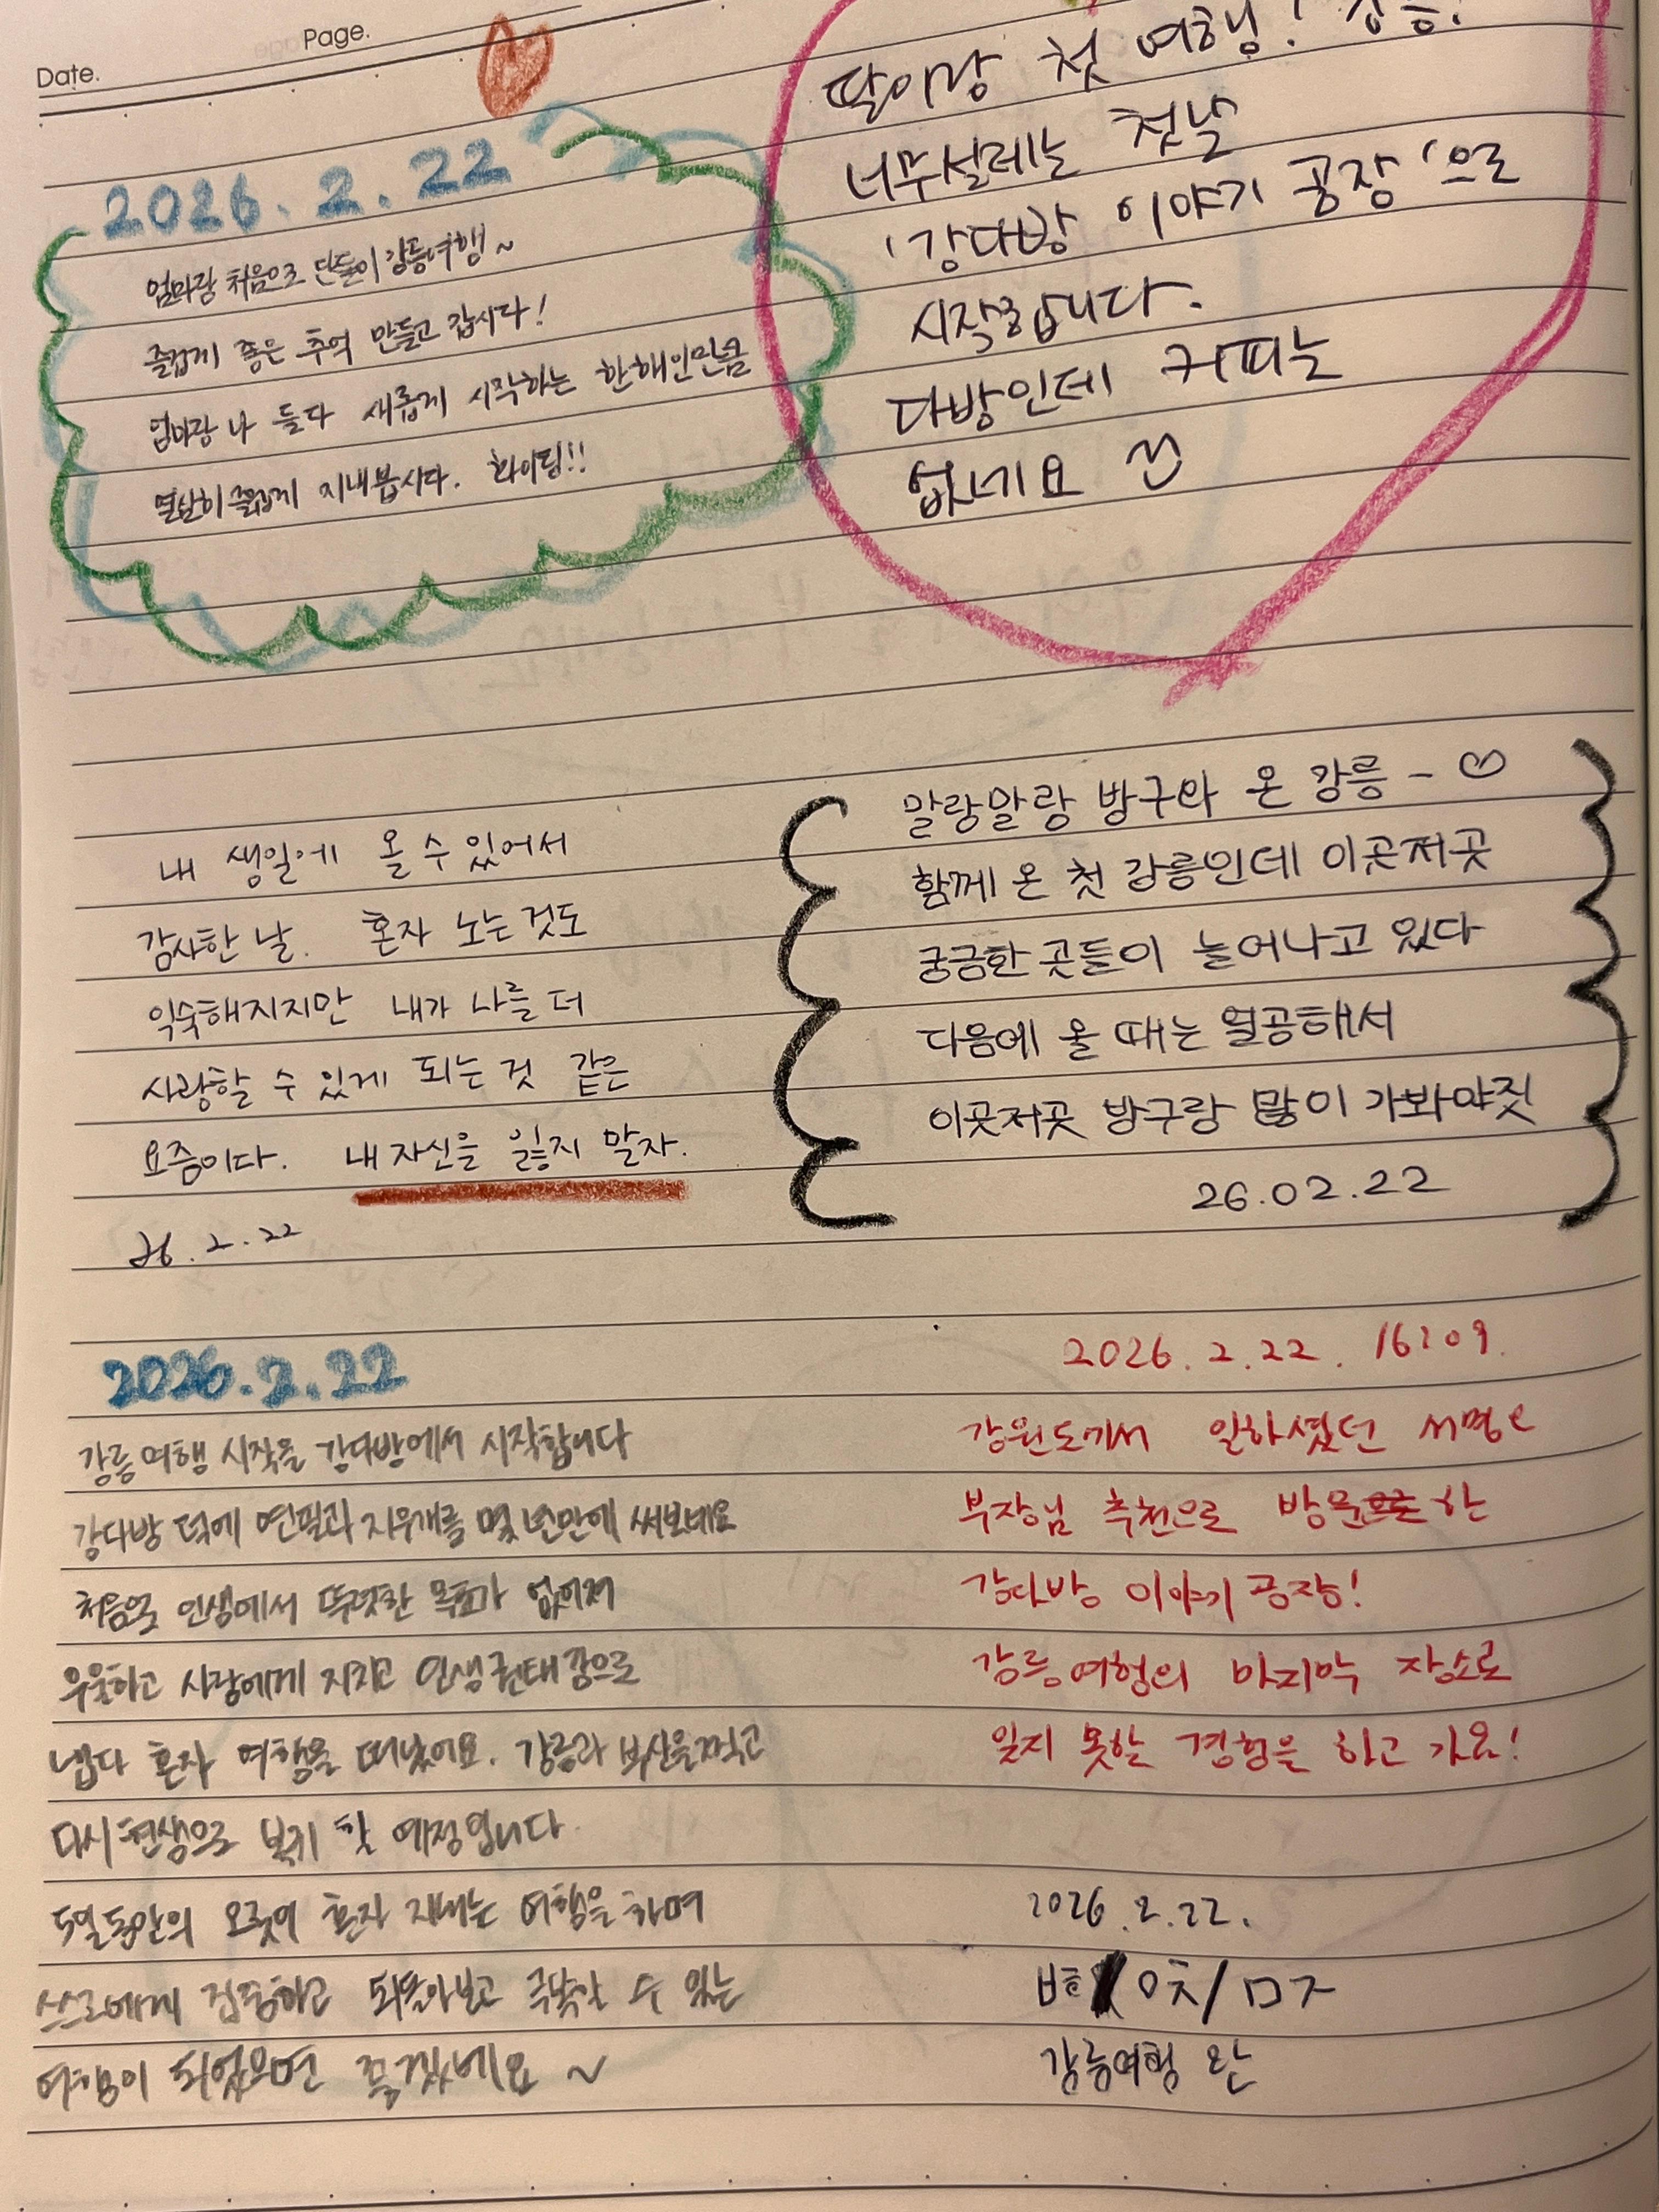 Page.
Date.
2026. 2. 22
엄마랑 처음으로 단둘이 강릉여행~
즐겁게 좋은 추억 만들고 갑시다!
엄마랑 나 둘다 새롭게 시작하는 한해인만큼
열심히 즐겁게 지내봅시다. 화이팅!!
딸이랑 첫 여행! 강릉!
너무설레는 첫날
'강다방 이야기 공장'으로
시작합니다.
다방인데 커피는
없네요
내 생일에 올 수 있어서
감사한 날. 혼자 노는 것도
익숙해지지만 내가 나를 더
사랑할 수 있게 되는 것 같은
요즘이다. 내 자신을 잃지 말자.
26. 2. 22
말랑말랑 방구와 온 강릉 - ♡
함께 온 첫 강릉인데 이곳저곳
궁금한 곳들이 늘어나고 있다
다음에 올 때는 열공해서
이곳저곳 방구랑 많이 가봐야짓
26.02.22
2026.2.22
강릉여행 시작을 강다방에서 시작합니다
강다방 덕에 연필과 지우개를 몇 년만에 써보네요
처음으로 인생에서 뚜렷한 목표가 없어져
우울하고 사랑에게 지치고 인생권태감으로
냅다 혼자 여행을 떠났어요. 강릉과 부산을 찍고
다시 현생으로 복귀 할 예정입니다
5일동안의 오롯이 혼자 지내는 여행을 하며
스스로에게 집중하고 되돌아보고 극복할 수 있는
여행이 되었으면 좋겠네요 ~
2026. 2. 22. 16:09.
강원도에서 일하셨던 서명
부장님 추천으로 방문한
강다방 이야기 공장!
강릉여행의 마지막 장소로
잊지 못할 경험을 하고 가요!
2026. 2. 22.
강릉여행 완